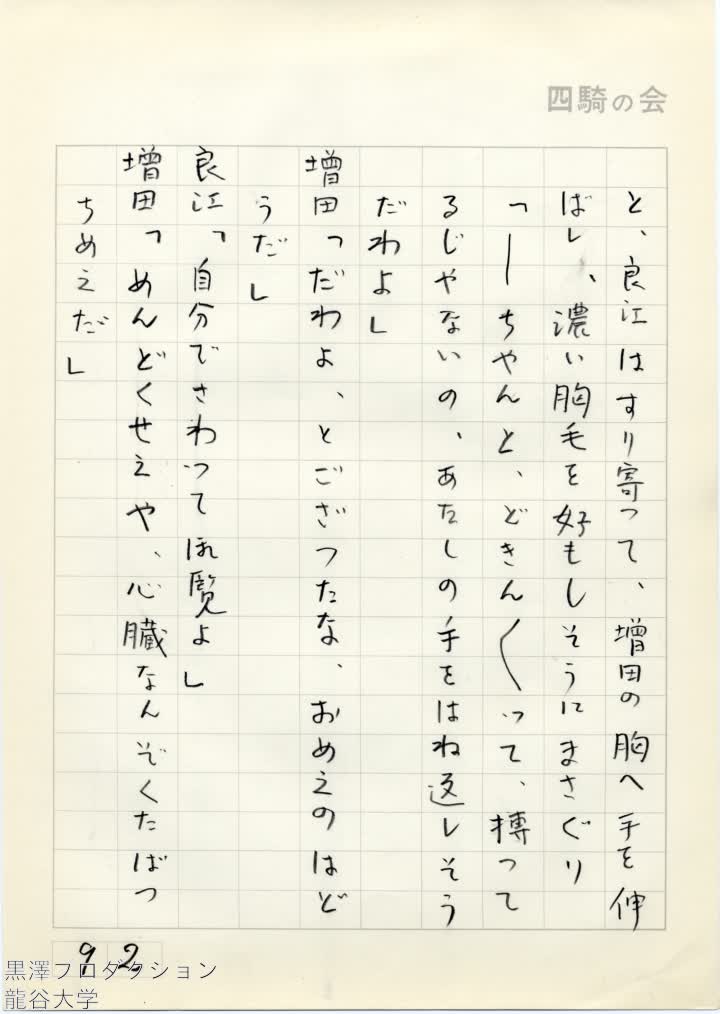 四騎の会
と、良江はすり寄って、増田の胸へ手を伸
ばし、濃い胸毛を好もしそうにまさぐり
「―ちやんと、どきん〱って、搏って
るじやないの、あたしの手をはね返しそう
だわよ」
増田「だわよ、とござつたな、おめえのはど
うだ」
良江「自分でさわってご覧よ」
増田「めんどくせえや、心臓なんぞくたばつ
ちめえだ」
92
黒澤プロダクション
龍谷大学